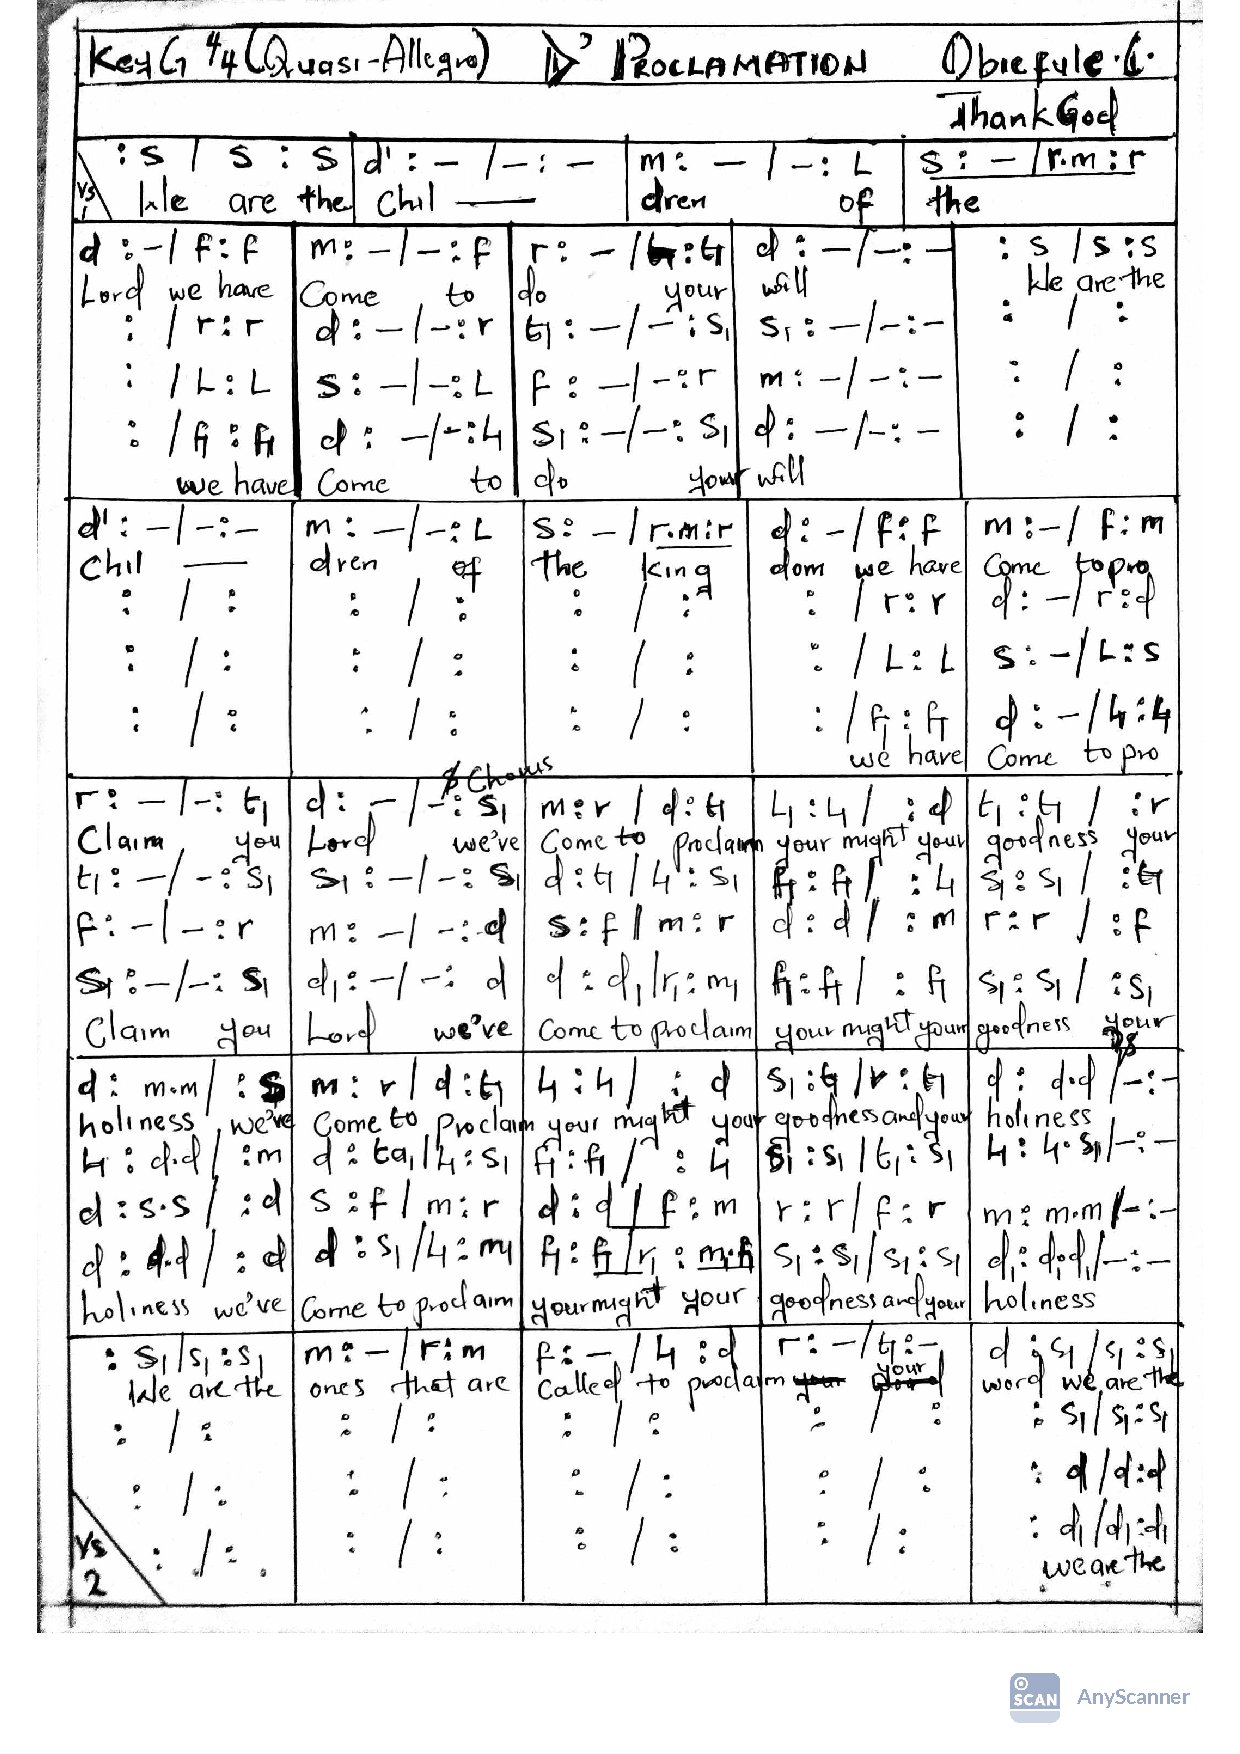 Key G 4/4 (Quasi-Allegro) D' PROCLAMATION Obiefule . C .
ThankGod
Vs 1
: s / s : s | d' : – / – : – | m : – / – : L | s : – / r.m : r
We are the | Chil —— | dren of | the
d : – / f : f | m : – / – : f | r : – / t₁ : t₁ | d : – / – : – | : s / s : s
Lord we have | Come to | do your | will | We are the
: / r : r | d : – / – : r | t₁ : – / – : s₁ | s₁ : – / – : – | : / :
: / L : L | s : – / – : L | f : – / – : r | m : – / – : – | : / :
: / f₁ : f₁ | d : – / – : L₁ | s₁ : – / – : s₁ | d : – / – : – | : / :
we have | Come to | do your | will
d' : – / – : – | m : – / – : L | s : – / r.m : r | d : – / f : f | m : – / f : m
Chil —— | dren of | the king | dom we have | Come to pro
: / : | : / : | : / : | : / r : r | d : – / r : d
: / : | : / : | : / : | : / L : L | s : – / L : s
: / : | : / : | : / : | : / f₁ : f₁ | d : – / L₁ : L₁
we have | Come to pro
$ Chorus
r : – / – : t₁ | d : – / – : s₁ | m : r / d : t₁ | L₁ : L₁ / : d | t₁ : t₁ / : r
Claim you | Lord we've | Come to proclaim | your might your | goodness your
t₁ : – / – : s₁ | s₁ : – / – : s₁ | d : t₁ / L₁ : s₁ | f₁ : f₁ / : L₁ | s₁ : s₁ / : t₁
f : – / – : r | m : – / – : d | s : f / m : r | d : d / : m | r : r / : f
s₁ : – / – : s₁ | d₁ : – / – : d | d : d₁ / r₁ : m₁ | f₁ : f₁ / : f₁ | s₁ : s₁ / : s₁
Claim you | Lord we've | Come to proclaim | your might your | goodness your
DS
d : m.m / : s | m : r / d : t₁ | L₁ : L₁ / : d | s₁ : t₁ / r : t₁ | d : d.d / – : –
holiness we've | Come to proclaim | your might your | goodness and your | holiness
L₁ : d.d / : m | d : ta₁ / L₁ : s₁ | f₁ : f₁ / : L₁ | s₁ : s₁ / t₁ : s₁ | L₁ : L₁.s₁ / – : –
d : s.s / : d | s : f / m : r | d : d / f : m | r : r / f : r | m : m.m / – : –
d : d.d / : d | d : s₁ / L₁ : m₁ | f₁ : f₁ / r₁ : m₁.f₁ | s₁ : s₁ / s₁ : s₁ | d₁ : d₁.d₁ / – : –
holiness we've | Come to proclaim | your might your | goodness and your | holiness
: s₁ / s₁ : s₁ | m : – / r : m | f : – / L₁ : d | r : – / t₁ : – | d : s₁ / s₁ : s₁
We are the | ones that are | Called to proclaim | your | word we are the
: / : | : / : | : / : | : / : | : s₁ / s₁ : s₁
: / : | : / : | : / : | : / : | : d / d : d
: / : | : / : | : / : | : / : | : d₁ / d₁ : d₁
Vs 2
we are the
SCAN AnyScanner